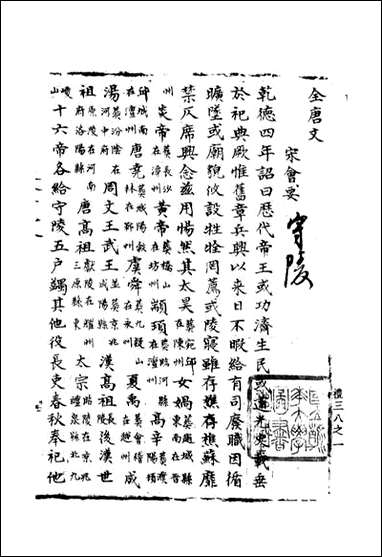 禮三八之一
全唐文
宋會要 守陵
乾德四年詔曰歷代帝王或功濟生民或道光史載垂
於祀典厥惟舊章兵興以來日不暇給有司廢職因循
曠墜或廟貌攸設牲牷罔薦或陵寢雖存樵存樵蘇靡
禁仄席興念茲用惕然其太昊葬宛邱在陳州女媧葬趙城縣東南在晉
州炎帝葬長沙在潭州黃帝葬橋山在坊州顓頊葬臨河縣在澶州高辛葬濮陽頓
邱城南在澶州唐堯葬城陽穀林在鄆州虞舜葬九疑山在永州夏禹葬會稽縣在越州成
湯葬汾陰在河中府周文王武王並葬京兆咸陽縣漢高祖長陵後漢世
祖原陵在河南府洛陽縣唐高祖獻陵在耀州三原縣東太宗昭陵在京兆醴泉縣北九
嵕山十六帝各給守陵五戶蠲其他役長吏春秋奉祀他